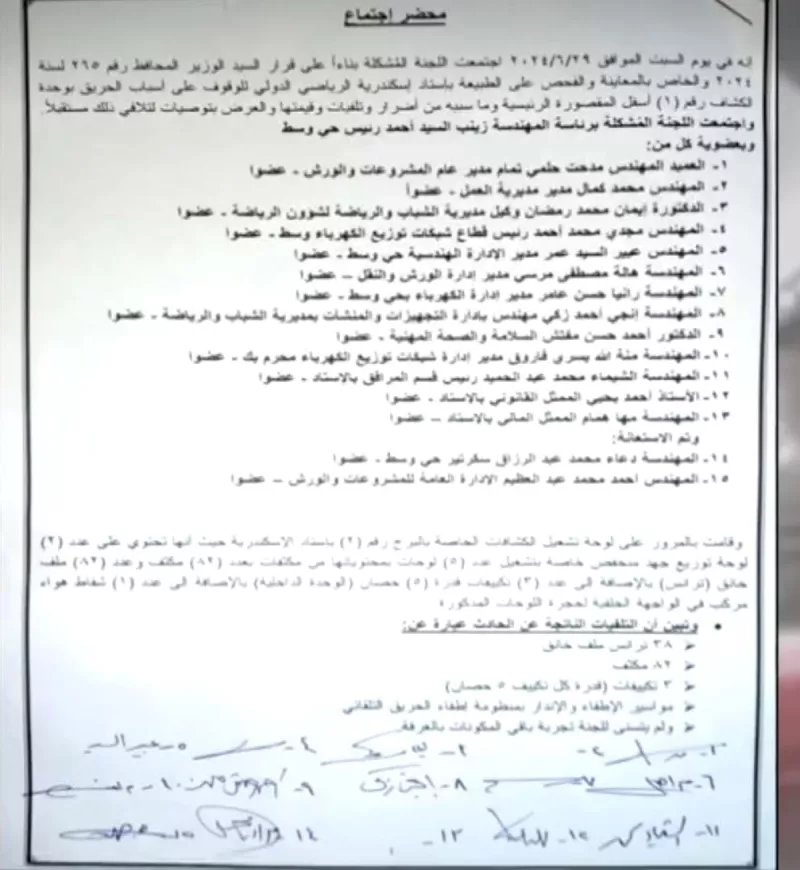 محضر إجتماع
إنه في يوم السبت الموافق ٢٠٢٤/٦/٢٩ اجتمعت اللجنة المُشكلة بناءاً على قرار السيد الوزير المحافظ رقم ٢٦٥ لسنة
٢٠٢٤ والخاص بالمعاينة والفحص على الطبيعة بإستاد إسكندرية الرياضي الدولي للوقوف على أسباب الحريق بوحدة
الكشاف رقم (١) أسفل المقصورة الرئيسية وما سببه من أضرار وتلفيات وقيمتها والعرض بتوصيات لتلافي ذلك مستقبلاً.
واجتمعت اللجنة المُشكلة برئاسة المهندسة زينب السيد أحمد رئيس حي وسط
وبعضوية كل من:
١- العميد المهندس مدحت حلمي تمام مدير عام المشروعات والورش - عضوا
٢- المهندس محمد كمال مدير مديرية العمل - عضوأ
٣- الدكتورة إيمان محمد رمضان وكيل مديرية الشباب والرياضة لشؤون الرياضة - عضوا
٤- المهندس مجدي محمد أحمد رئيس قطاع شبكات توزيع الكهرباء وسط - عضوا
٥- المهندس عبير السيد عمر مدير الإدارة الهندسية حي وسط - عضوا
٦- المهندسة هالة مصطفى مرسي مدير إدارة الورش والنقل – عضوا
٧- المهندسة رانيا حسن عامر مدير إدارة الكهرباء بحي وسط - عضوا
٨- المهندسة إنجي أحمد زكي مهندس بإدارة التجهيزات والمنشات بمديرية الشباب والرياضة - عضوا
٩- الدكتور أحمد حسن مفتش السلامة والصحة المهنية - عضوا
١٠- المهندسة منة الله يسري فاروق مدير إدارة شبكات توزيع الكهرباء محرم بك - عضوا
١١- المهندسة الشيماء محمد عبد الحميد رئيس قسم المرافق بالاستاد - عضوا
١٢- الأستاذ أحمد يحيى الممثل القانوني بالاستاد - عضوا
١٣- المهندسة مها همام الممثل المالي بالاستاد – عضوا
وتم الاستعانة:
١٤- المهندسة دعاء محمد عبد الرزاق سكرتير حي وسط - عضوا
١٥- المهندس أحمد محمد عبد العظيم الإدارة العامة للمشروعات والورش – عضوا
وقامت بالمرور على لوحة تشغيل الكشافات الخاصة بالبرج رقم (٢) بإستاد الإسكندرية حيث أنها تحتوي على عدد (٢)
لوحة توزيع جهد منخفض خاصة بتشغيل عدد (٥) لوحات بمحتوياتها من مكثفات بعدد (٨٢) مكثف وعدد (٨٢) ملف
خانق (ترانس) بالإضافة الى عدد (٣) تكييفات قدرة (٥) حصان (الوحدة الداخلية) بالإضافة الى عدد (١) شفاط هواء
مركب في الواجهة الخلفية لحجرة اللوحات المذكورة.
• وتبين أن التلفيات الناتجة عن الحادث عبارة عن:
➢ ٣٨ ترانس ملف خانق
➢ ٨٢ مكثف
➢ ٣ تكييفات (قدرة كل تكييف ٥ حصان)
➢ مواسير الإطفاء والإنذار بمنظومة إطفاء الحريق التلقائي
➢ ولم يتسنى للجنة تجربة باقي المكونات بالغرفة.